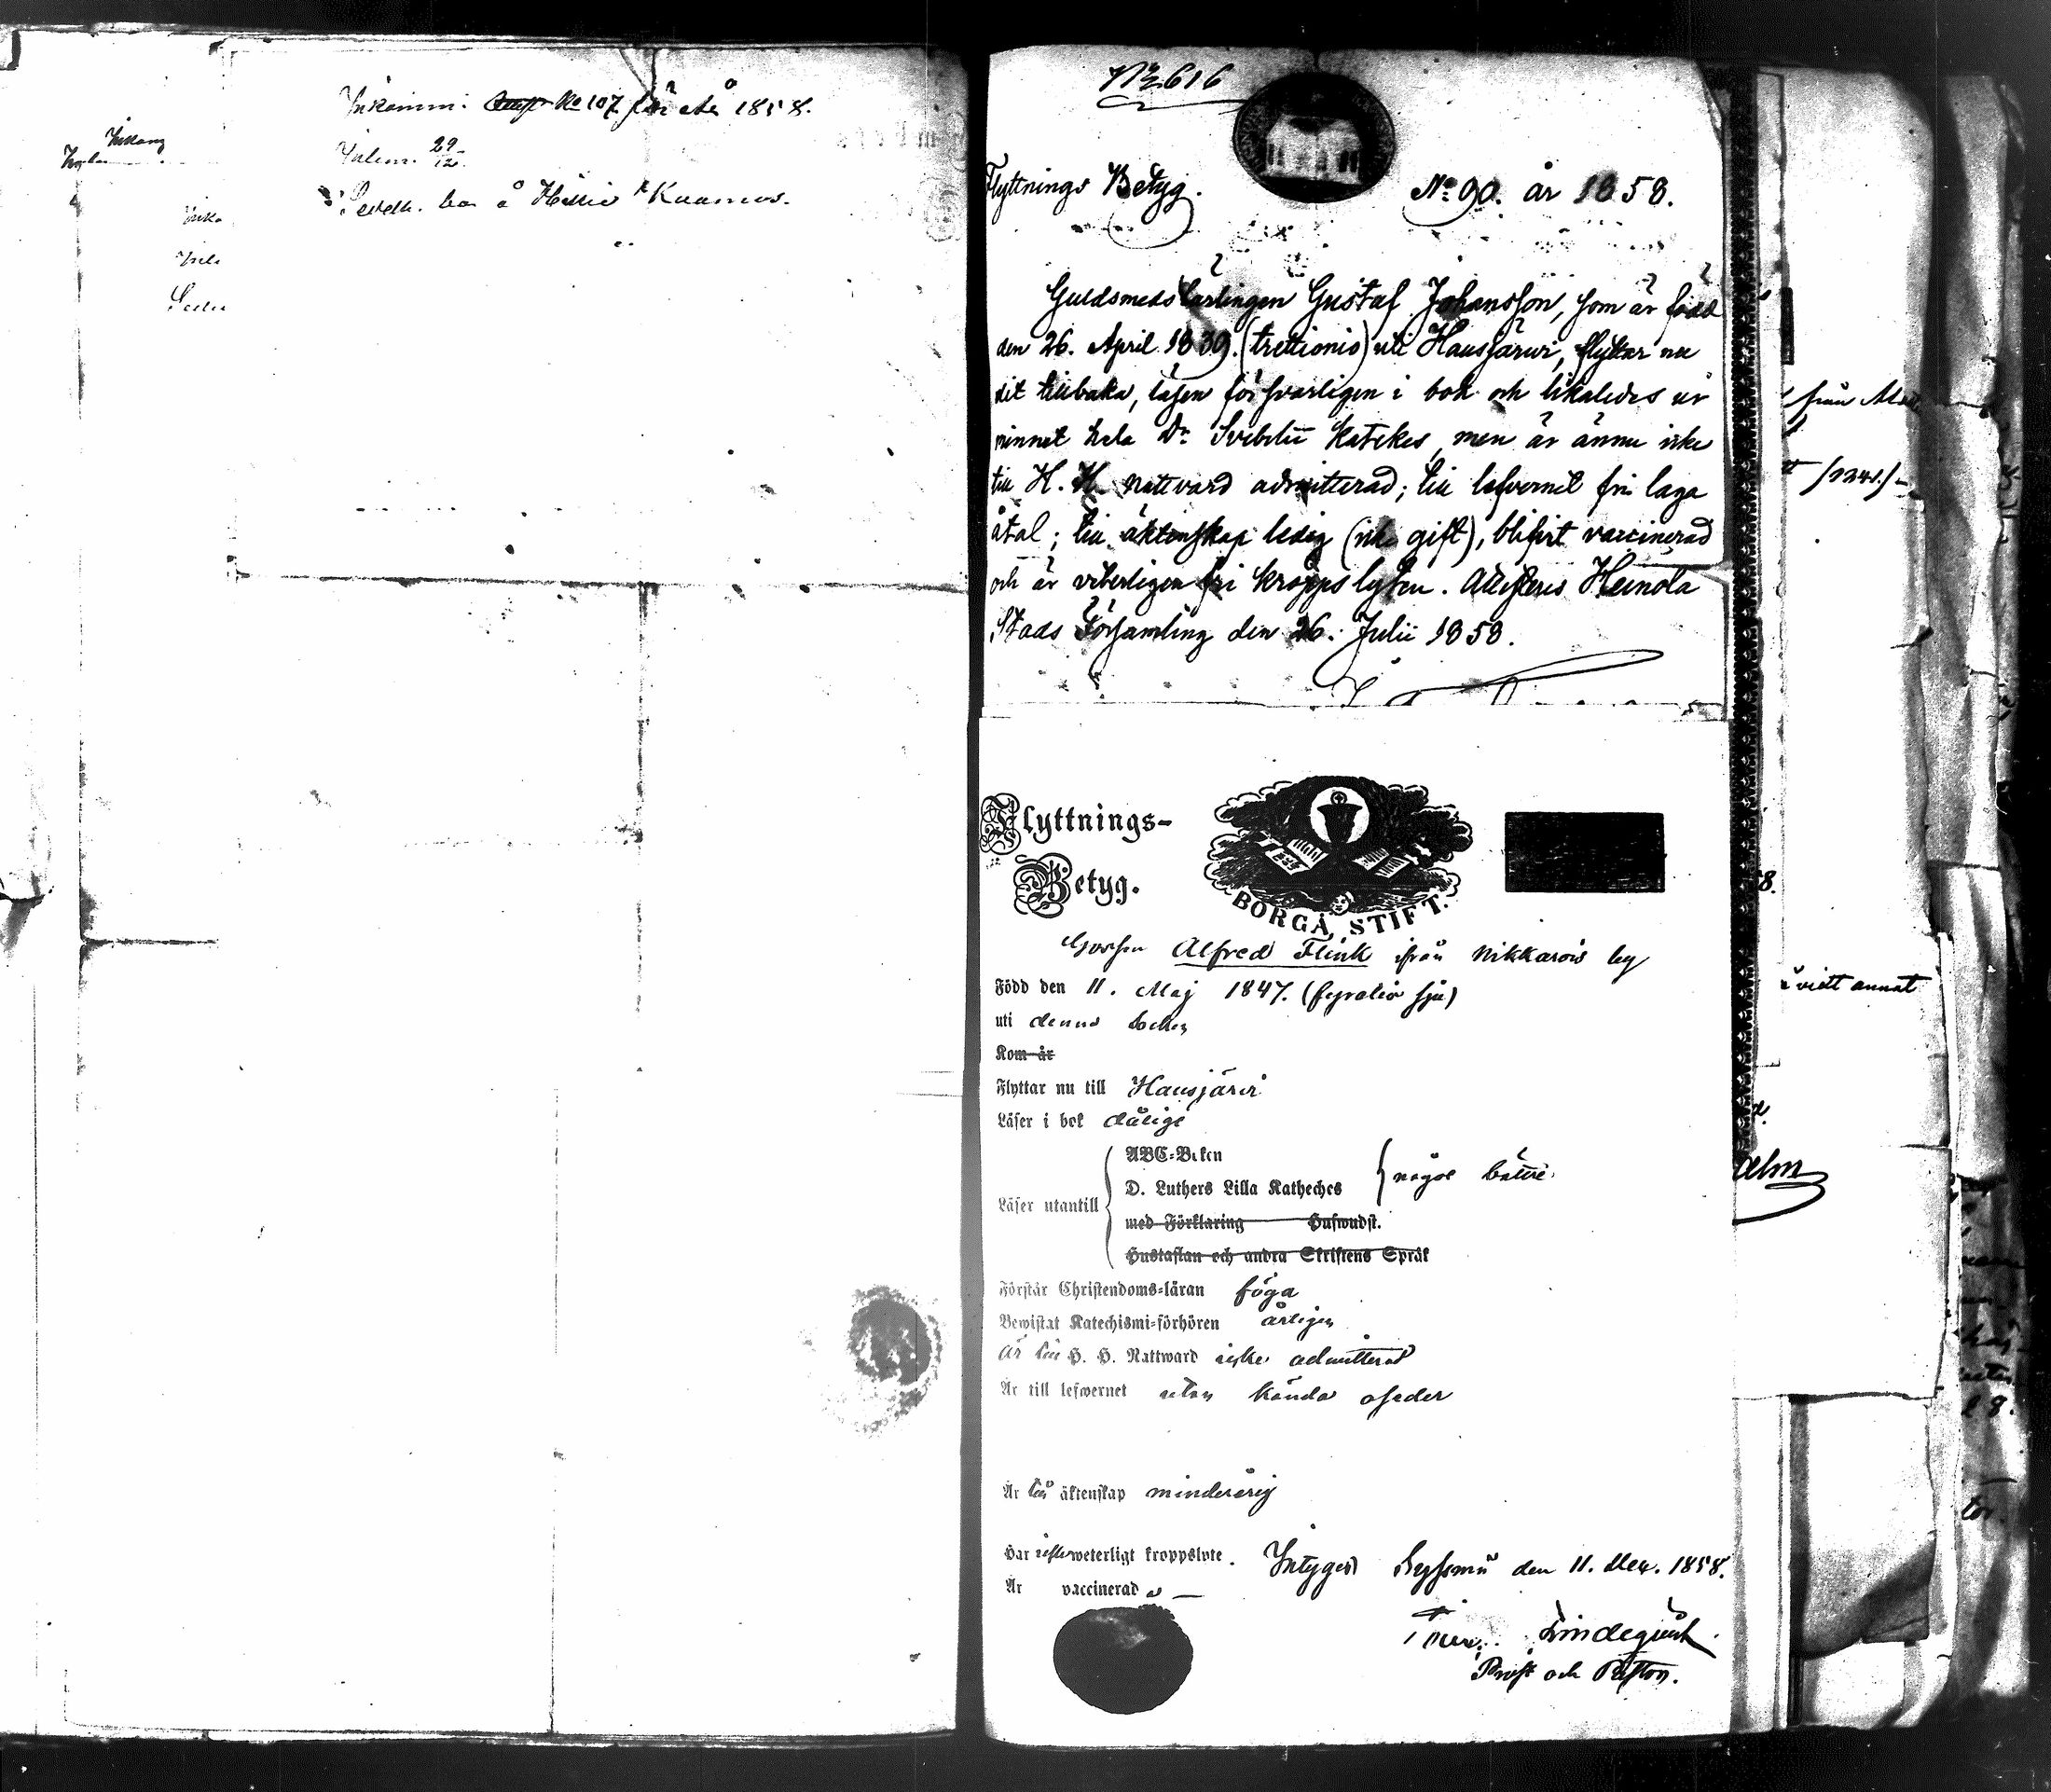 Inkomm: No 107 för År 1858.
Inlem. 29/12.
No 616
Flyttnings Betyg. No 90. år 1858.
Guldsmedslärlingen Gustaf Johansson, som är född
den 26. April 1839. (trettionio) uti Hausjärwi, flyttar nu
dit tillbaka, läsen försvarligen i bok och likaledes ur
minnet hela Dr Svebelii Katekes, men är ännu icke
till H. H. nattvard admitterad; till lefvernet fri laga
åtal; till äktenskap ledig (icke gift), blifvit vaccinerad
och är veterligen fri kroppslyten. Attesteras Heinola
Stads Församling den 26. Julii 1858.
Flyttnings-
Betyg.
BORGÅ STIFT.
Gossen Alfred Flink ifrån Nikkarois by
Född den 11. Maj 1847. (fyratio sju)
uti denna Socken
Kom år
Flyttar nu till Hausjärvi
Läser i bok dåligt
Läser utantill
ABC-Boken
D. Luthers Lilla Katheches
något bättre
med Förklaring Huswudst.
Hustaflan och andra Skriftens Språk
Förstår Christendoms-läran föga
Bewistat Katechismi-förhören årligen
är till H. H. Nattward icke admitterad
Är till lefwernet utan kända oseder
Är till äktenskap minderårig
Har icke weterligt kroppslyte. Intygas den 11. Dec. 1858.
Är vaccinerad
Lindequist
Prost och Pastor.
från
alm
annat